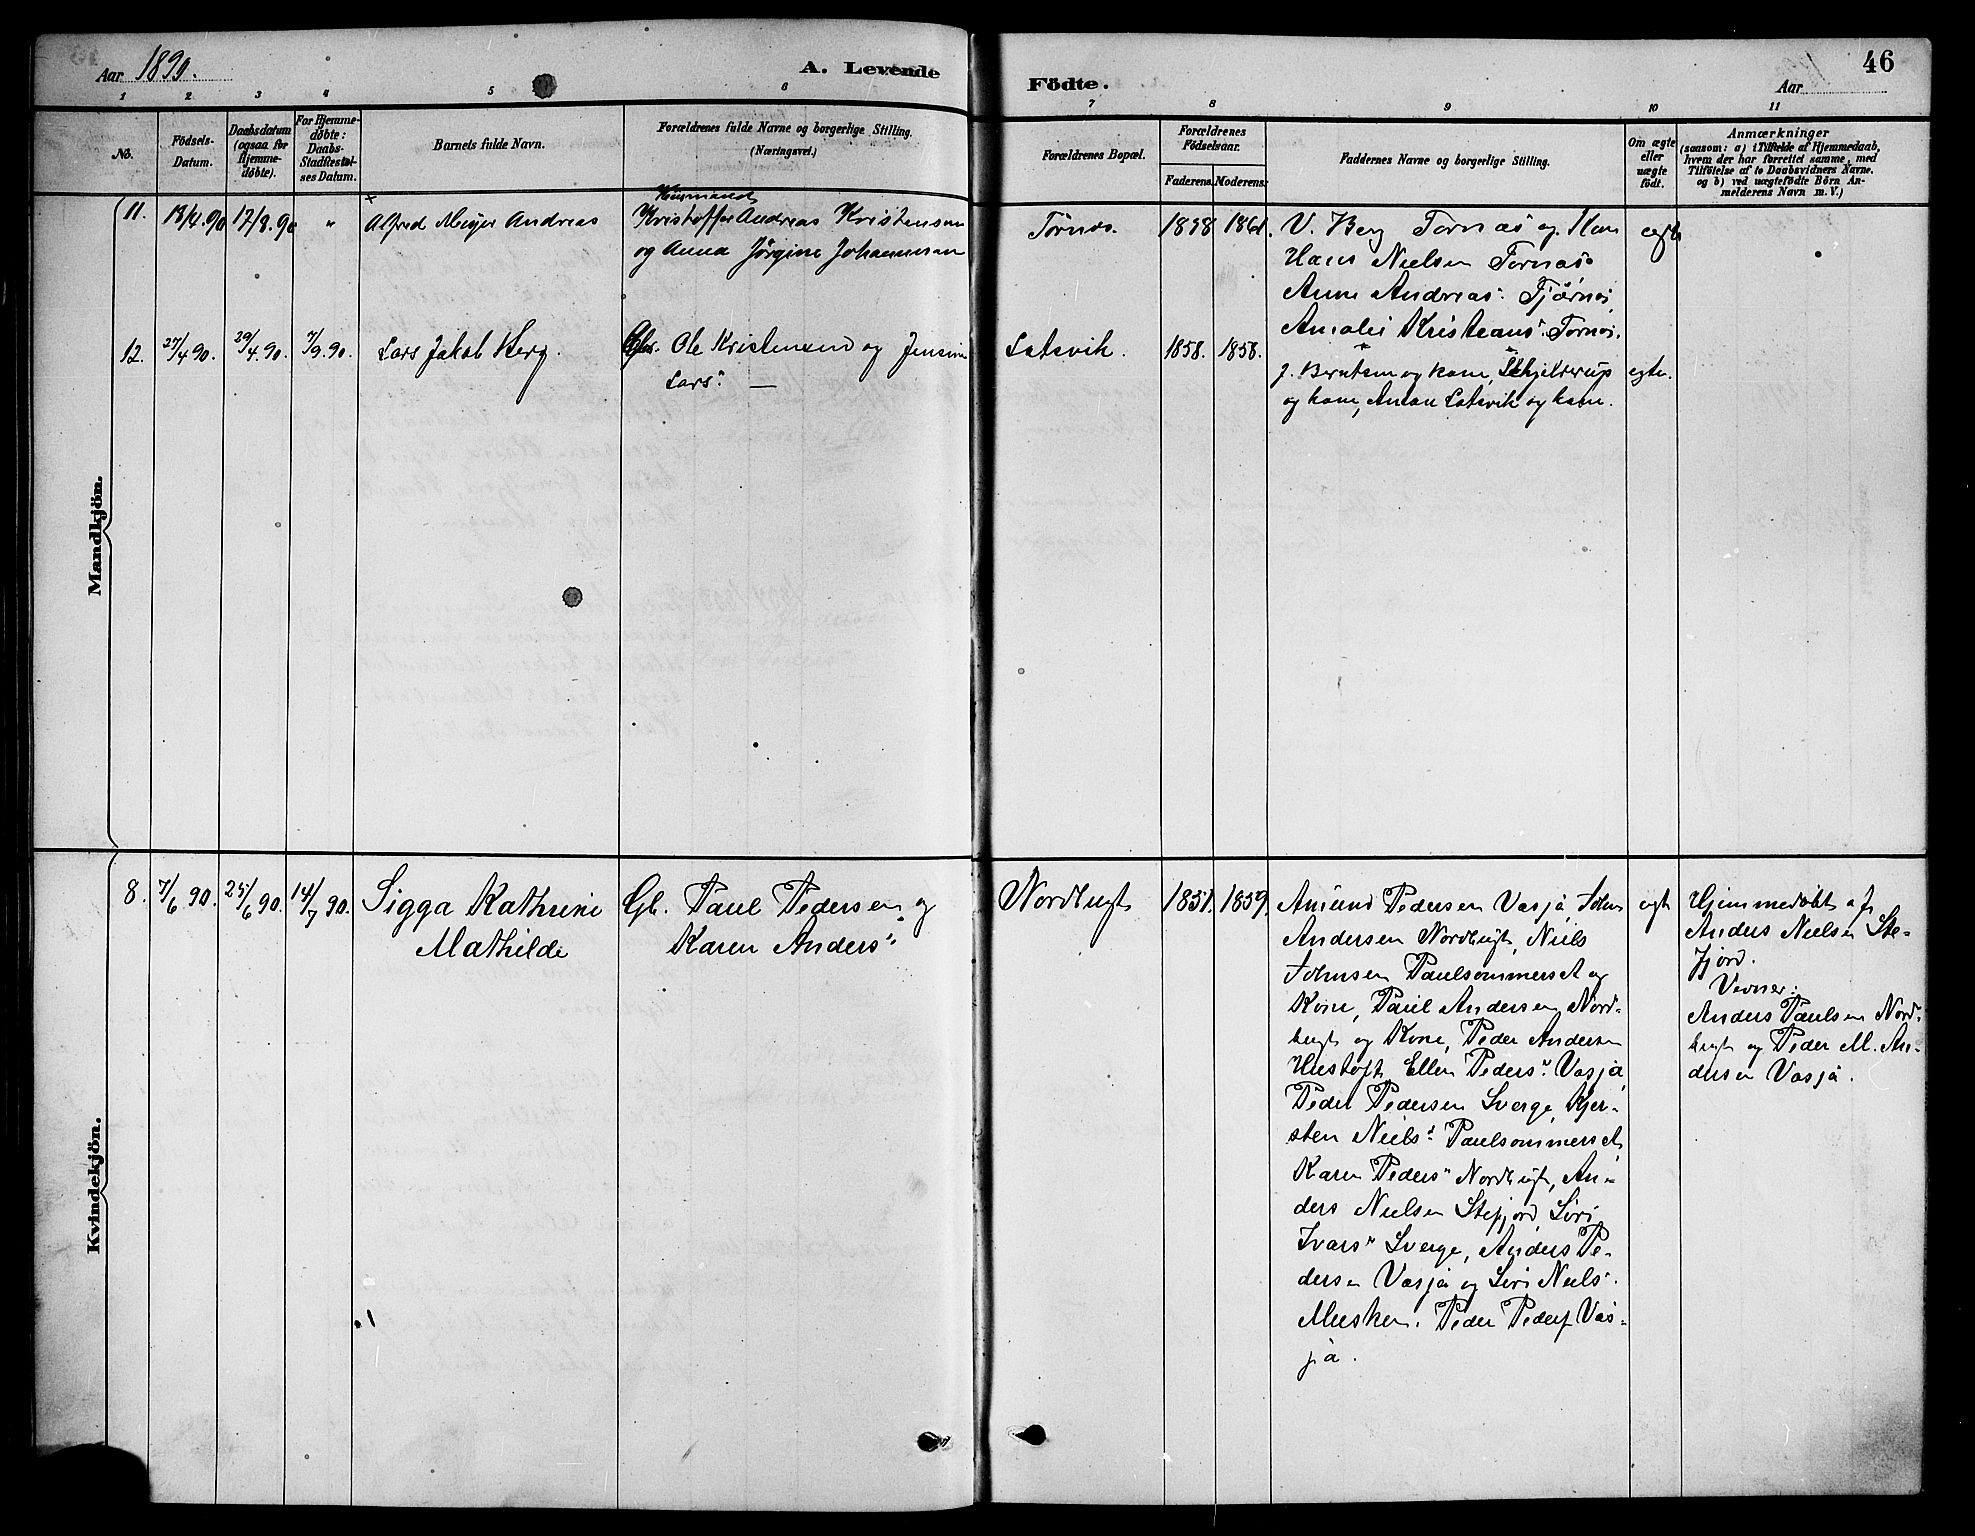 Aar 1890.
A. Levende
Födte.
Aar
46
1 2 3 4 5 6 7 8 9 10 11
No.
Födsels-Datum.
Daabsdatum (ogsaa for Hjemme-döbte).
For Hjemme-döbte: Daabs-Stadfæstel-ses Datum.
Barnets fulde Navn.
Forældrenes fulde Navne og borgerlige Stilling.
(Næringsvei.)
Forældrenes Bopæl.
Forældrenes Födselsaar.
Faderens. Moderens.
Faddernes Navne og borgerlige Stilling.
Om ægte eller uægte födt.
Anmærkninger
(saasom: a) i Tilfælde af Hjemmedaab,
hvem der har forrettet samme, med
Tilföielse af to Daabsvidners Navne.
og b) ved uægtefödte Börn An-
melderens Navn m. V.)
Mandkjön.
11. 18/4.90 17/8.90 " Alfred Meyer Andreas
Husmand
Kristoffer Andreas Kristensen
og Anna Jörgine Johannesen
Tørnes. 1858 1861.
V. Berg Tornæs og Kone
Hans Nielsen Tornæs
Anne Andreas: Tjørnes
Amalie Kristians: Tornes.
ægte
12. 27/4 90. 29/4.90. 7/9.90. Lars Jakob Berg.
Gbr. Ole Kristensen og Jensine
Lars: —
Lotsvik. 1858. 1858.
J. Berntsen og kone, Schjelderup
og kone, Anton Lotsvik og kone.
egte.
Kvindekjön.
8. 7/6 90. 25/6 90. 14/7 90. Sigga Kathrine
Mathilde
Gb. Paul Pedersen og
Karen Anders"
Nordbugt 1851. 1859.
Amund Pedersen Vasja, John
Andersen Nordbugt, Niels
Johnsen Paulsommerset og
Kone, Paul Andersen Nord-
bugt og Kone, Peder Andersen
Hustoft Ellen Peders" Vasja
Peder Pedersen Sverge, Kjer-
sten Niels: Paulsommerset
Karen Peders" Nordbugt, An-
ders Nielsen Stefjord, Siri
Ivars" Sverge, Anders Pe-
dersen Vasja og Siri Niels".
Musken. Peder Peders Vas-
ja.
egt
Hjemmedöbt af
Anders Nielsen Ste-
fjord.
Vidner:
Anders Paulsen Nord-
bugt og Peder M. An-
dersen Vasja.